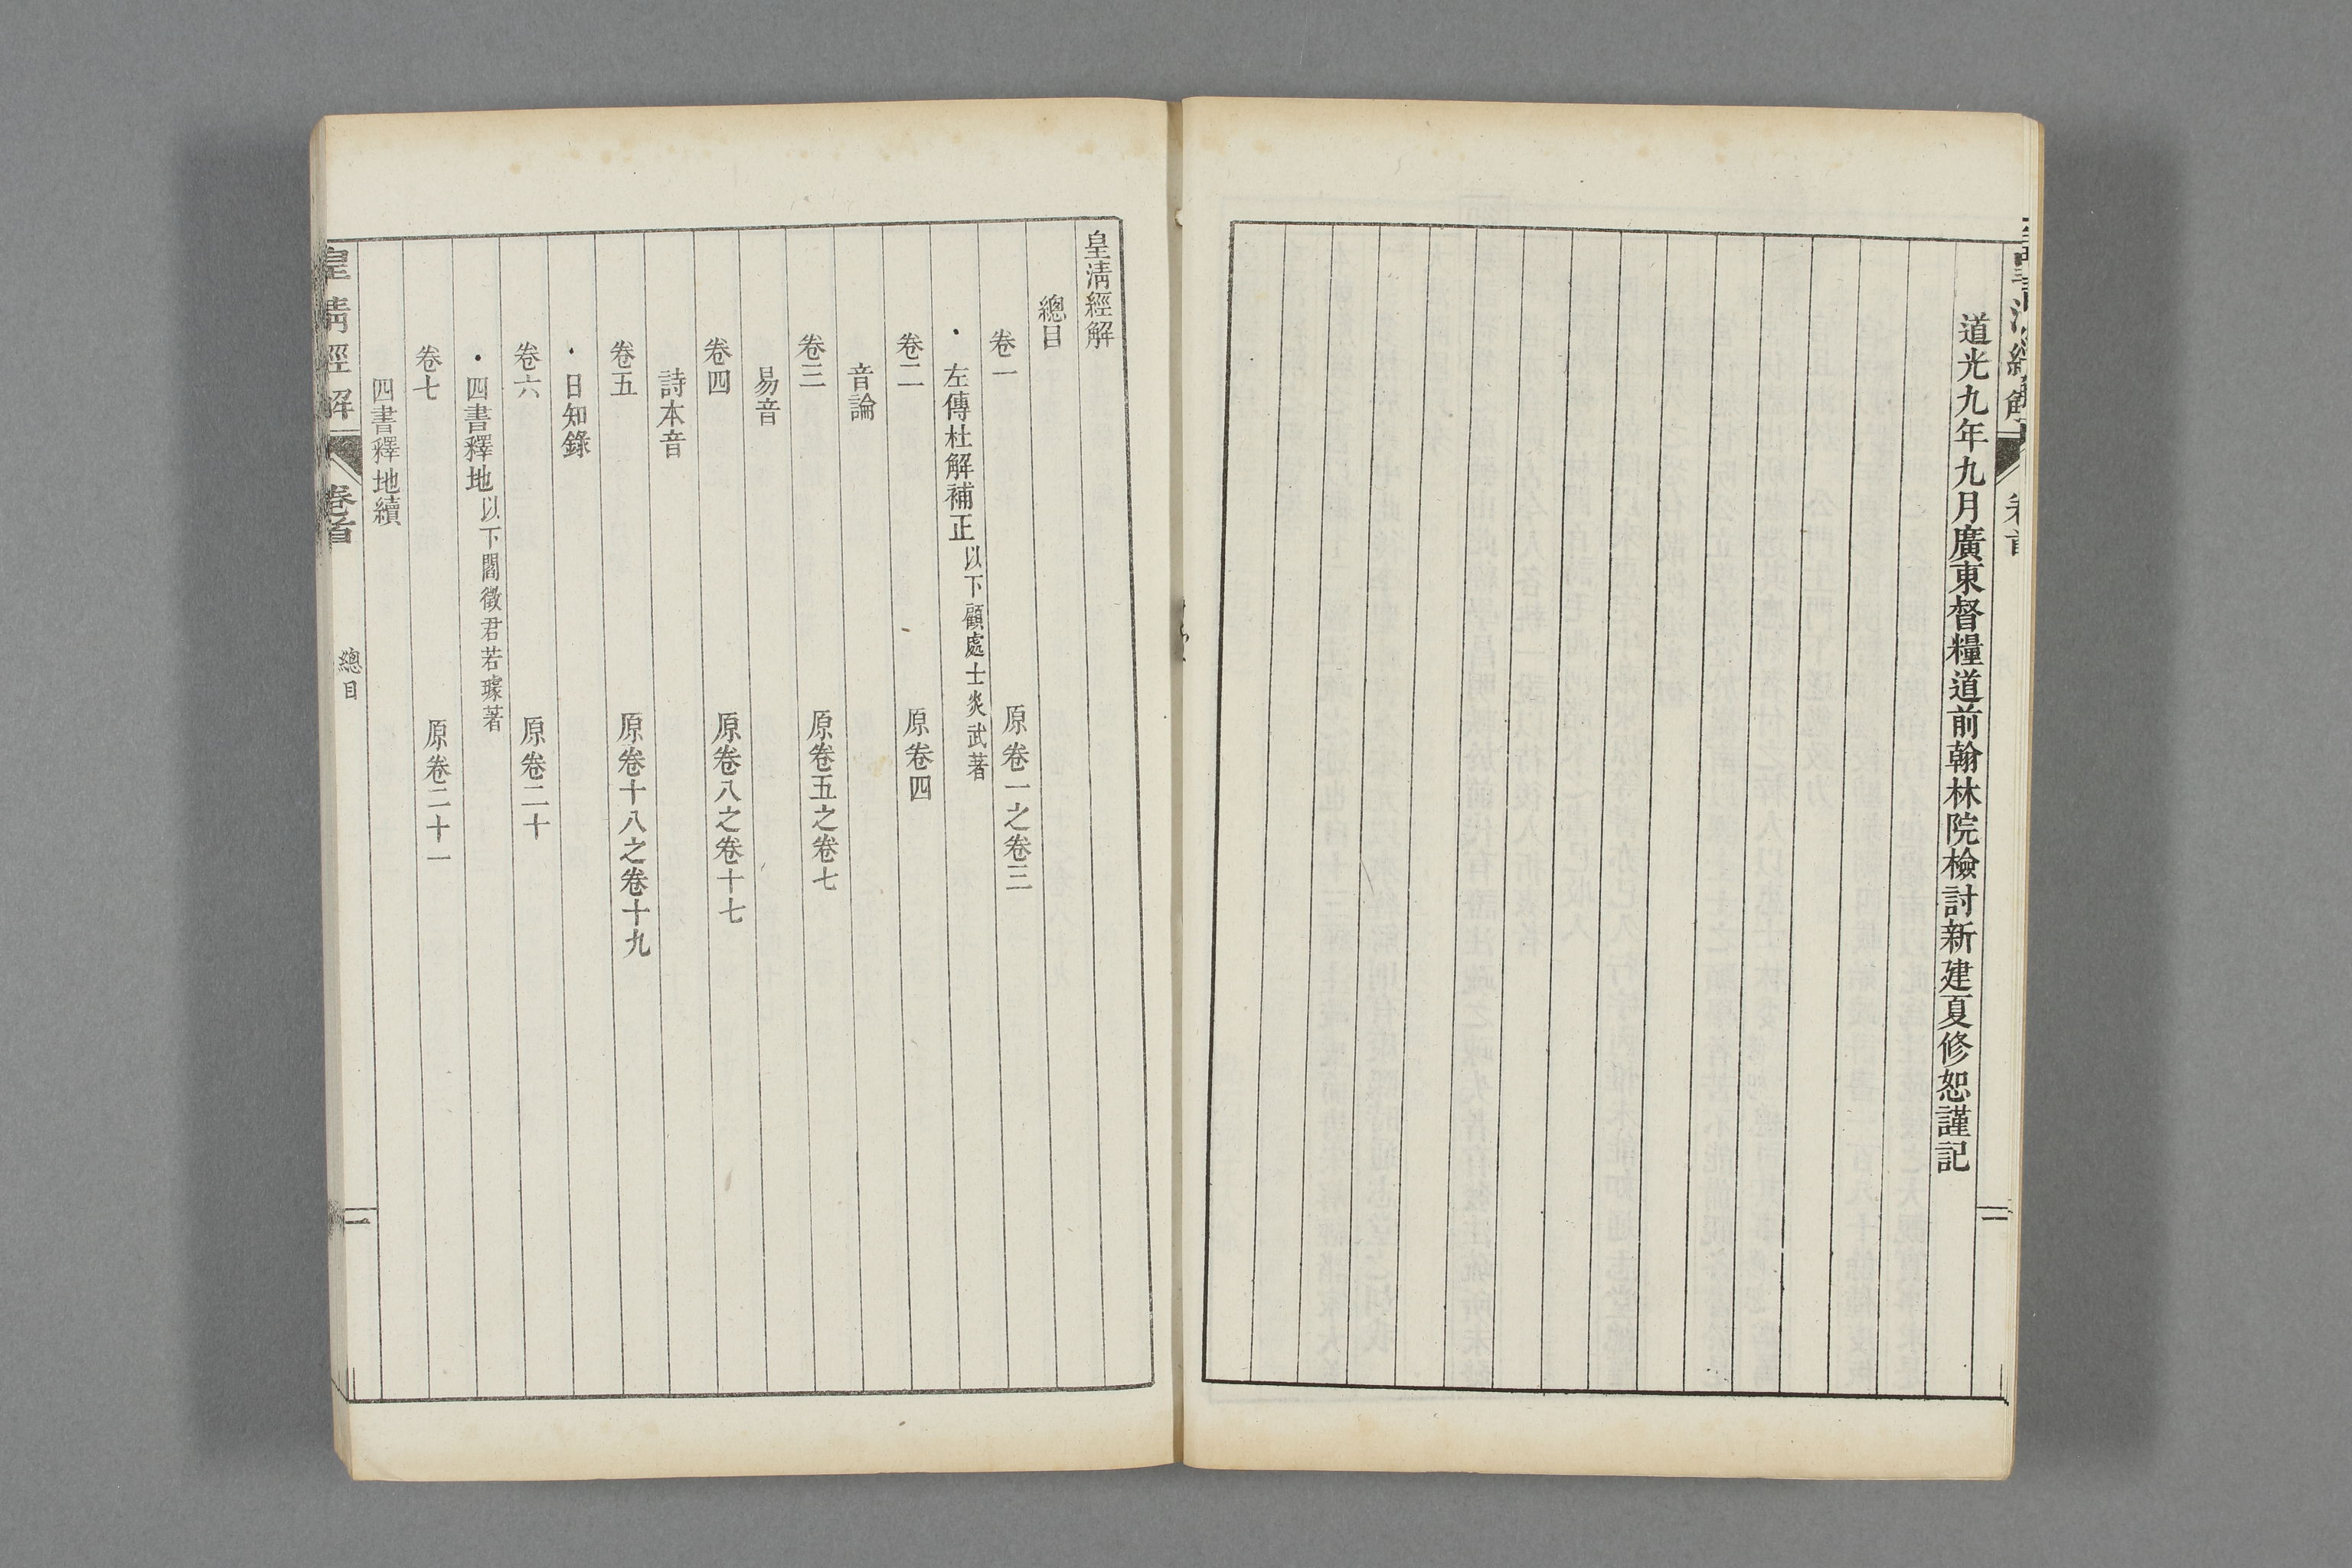 道光九年九月廣東督糧道前翰林院檢討新建夏修恕謹記
皇清經解
卷首
二
皇清經解
總目
卷一 原卷一之卷三
左傳杜解補正 以下顧處士炎武著
卷二 原卷四
音論
卷三 原卷五之卷七
易音
卷四 原卷八之卷十七
詩本音
卷五 原卷十八之卷十九
日知錄
卷六 原卷二十
四書釋地 以下閻徵君若璩著
卷七 原卷二十一
四書釋地續
皇清經解
卷首
總目
一